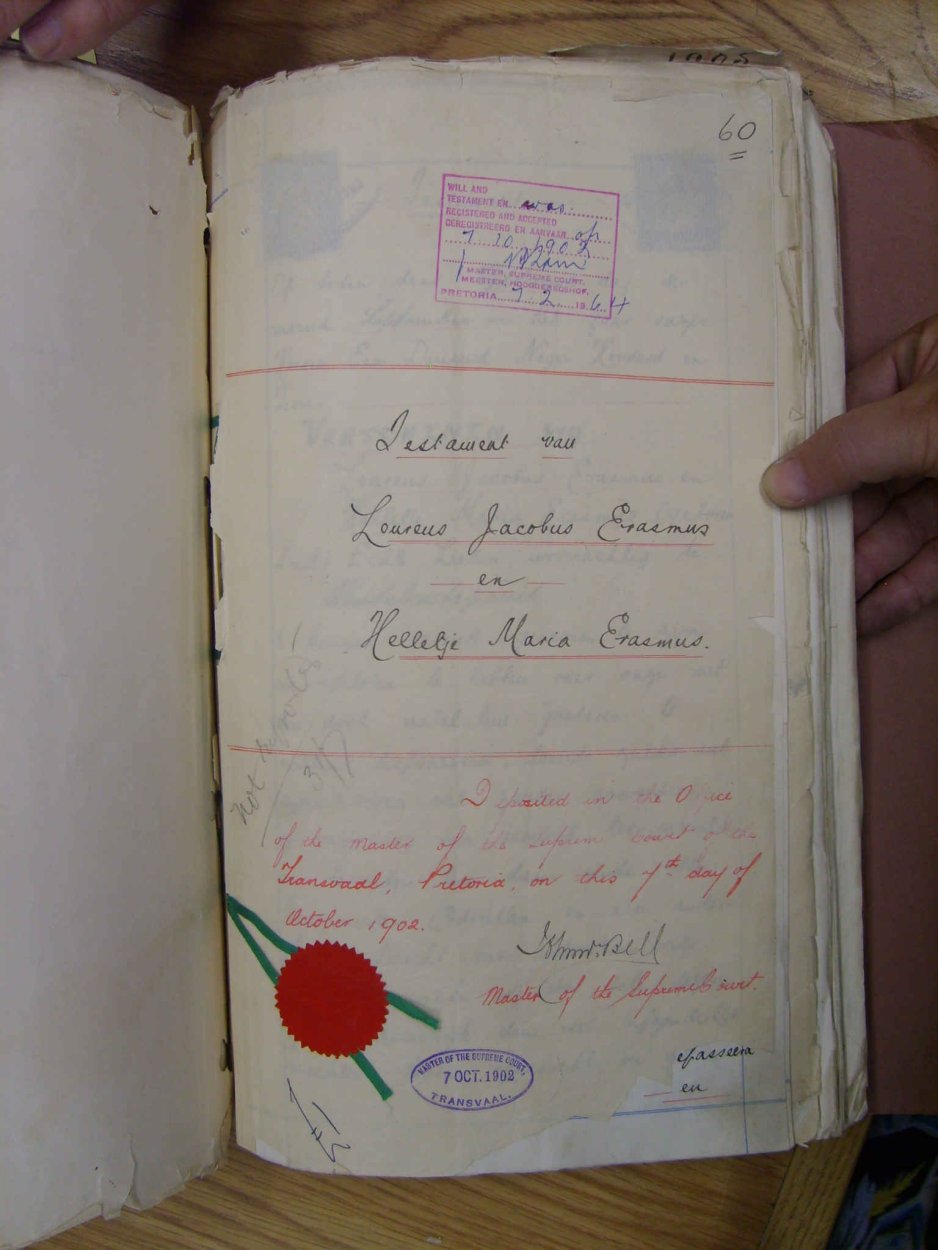 60
WILL AND
TESTAMENT EN was.
REGISTERED AND ACCEPTED
GEREGISTREERD EN AANVAAR op
7 10 1902
MASTER, SUPREME COURT,
MEESTER, HOOGGEREGSHOF,
PRETORIA 7 2 1964
Testament van
Loureus Jacobus Erasmus
en
Helletje Maria Erasmus.
Deposited in the Office
of the master of the Suprem Court of the
Transvaal, Pretoria, on this 7th day of
October 1902.
Master of the Supreme Court.
MASTER OF THE SUPREME COURT,
7 OCT. 1902
TRANSVAAL.
en